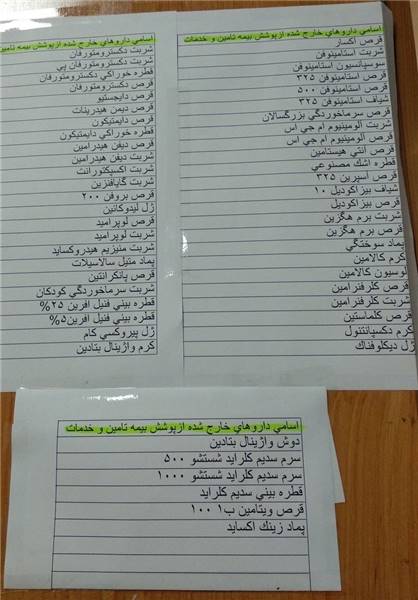 اسامي داروهاي خارج شده ازپوشش بيمه تامين و خدمات
قرص اكسار
شربت استامينوفن
سوسپانسيون استامينوفن
قرص استامينوفن ۳۲۵
قرص استامينوفن ۵۰۰
شياف استامينوفن ۳۲۵
قرص سرماخوردگي بزرگسالان
شربت آلومينيوم ام جي اس
قرص آلومينيوم ام جي اس
قرص آنتي هيستامين
قطره اشك مصنوعي
قرص آسپرين ۳۲۵
شياف بيزاكوديل ۱۰
قرص بيزاكوديل
شربت برم هگزين
قرص برم هگزين
پماد سوختگي
كرم كالامين
لوسيون كالامين
قرص كلرفنرامين
شربت كلرفنرامين
قرص كلماستين
كرم دكسپانتنول
ژل ديكلوفناك
اسامي داروهاي خارج شده ازپوشش بيمه تامين
شربت دكسترومتورفان
شربت دكسترومتورفان پي
قطره خوراكي دكسترومتورفان
قرص دكسترومتورفان
قرص دايجستيو
قرص ديمن هيدرينات
قرص دايمتيكون
قطره خوراكي دايمتيكون
قرص ديفن هيدرامين
شربت ديفن هيدرامين
شربت اكسپكتورانت
شربت گايافنزين
قرص بروفن ۲۰۰
ژل ليدوكائين
قرص لوپراميد
شربت لوپراميد
شربت منيزيم هيدروكسايد
پماد متيل سالاسيلات
قرص پانكراتين
شربت سرماخوردگي كودكان
قطره بيني فنيل افرين ۲۵%
قطره بيني فنيل افرين۵%
ژل پيروكسي كام
كرم واژينال بتادين
اسامي داروهاي خارج شده ازپوشش بيمه تامين و خدمات
دوش واژينال بتادين
سرم سديم كلرايد شستشو ۵۰۰
سرم سديم كلرايد شستشو ۱۰۰۰
قطره بيني سديم كلرايد
قرص ويتامين ب۱ ۱۰۰
پماد زينك اكسايد